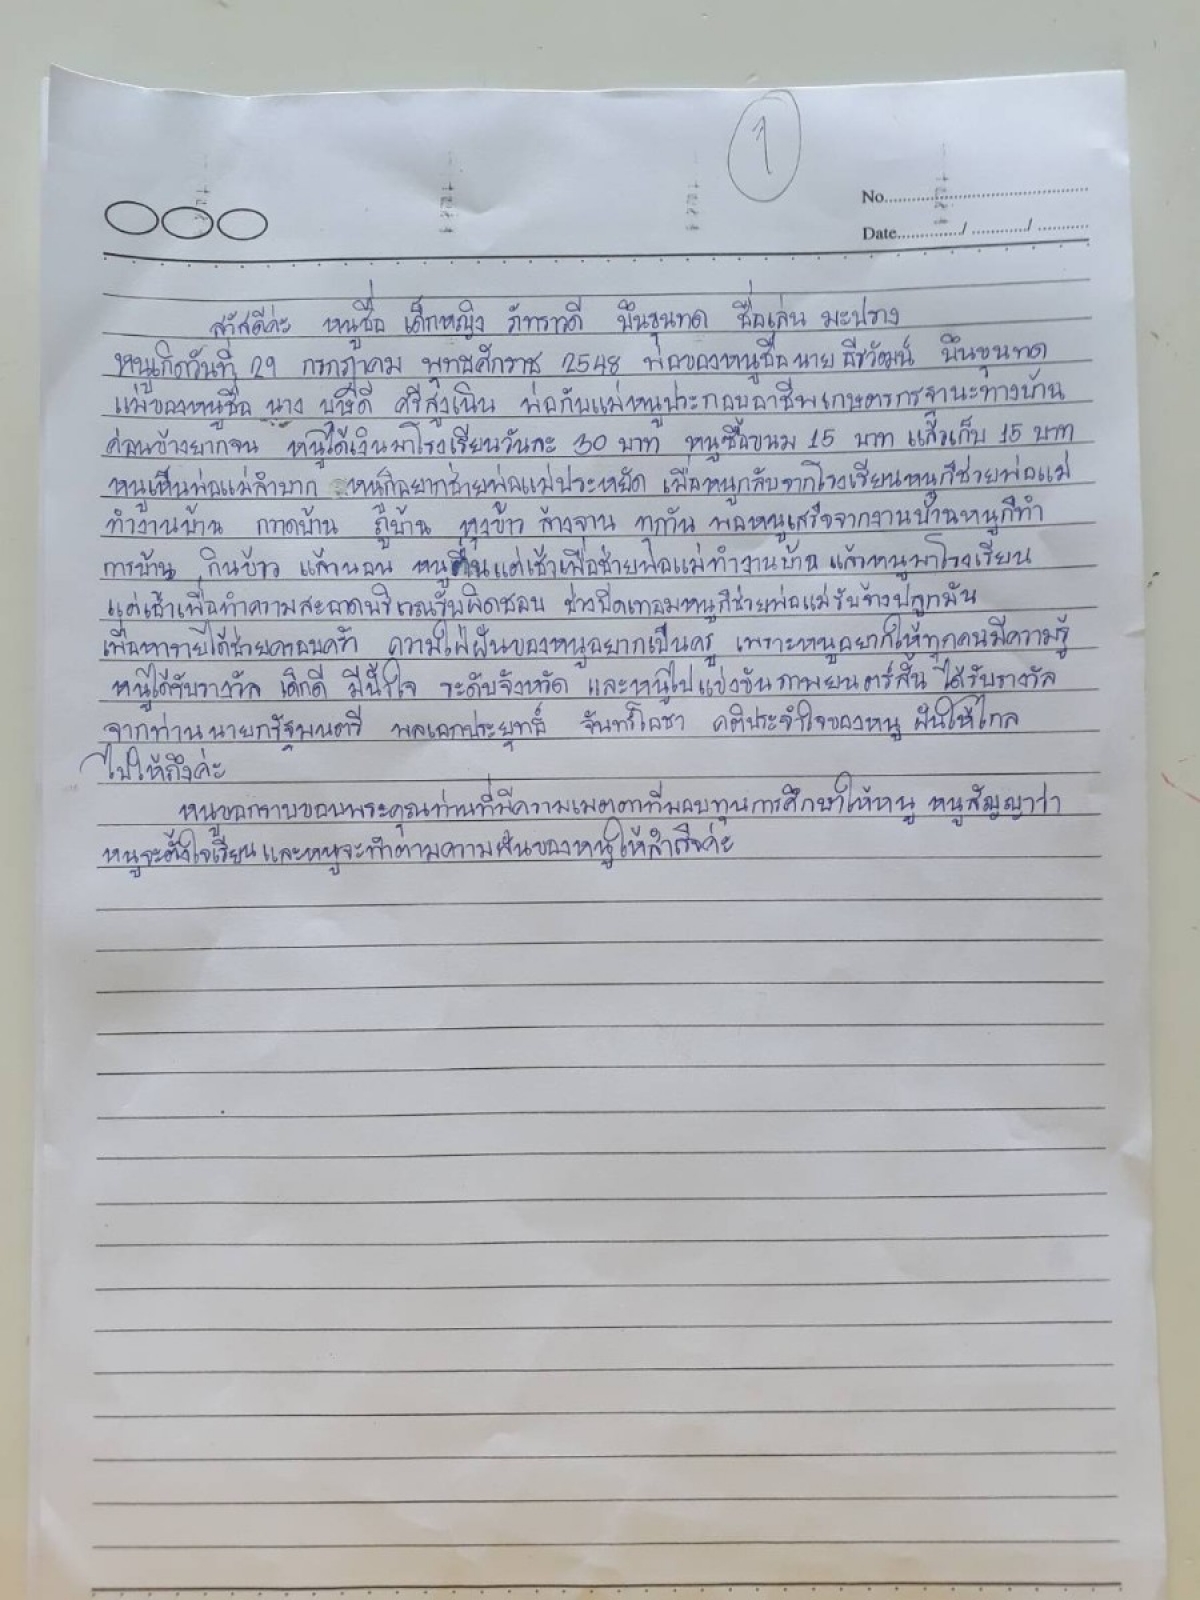 1
No.
Date......../......../........
สวัสดีค่ะ หนูชื่อ เด็กหญิง ภัทราวดี ปึนขุนทด ชื่อเล่น มะปราง
หนูเกิดวันที่ 29 กรกฎาคม พุทธศักราช 2548 พ่อของหนูชื่อ นาย ธีรวัฒน์ ปึนขุนทด
แม่ของหนูชื่อ นาง ศรีสูงเนิน พ่อกับแม่หนูประกอบอาชีพเกษตรกรฐานะทางบ้าน
ค่อนข้างยากจน หนูได้เงินมาโรงเรียนวันละ 30 บาท หนูซื้อขนม 15 บาท แล้วเก็บ 15 บาท
หนูเห็นพ่อแม่ลำบาก หนูก็อยากช่วยพ่อแม่ประหยัด เมื่อหนูกลับจากโรงเรียนหนูก็ช่วยพ่อแม่
ทำงานบ้าน กวาดบ้าน ถูบ้าน หุงข้าว ล้างจาน ทุกวัน พอหนูเสร็จจากงานบ้านหนูก็ทำ
การบ้าน กินข้าว แล้วนอน หนูตื่นแต่เช้าเพื่อช่วยพ่อแม่ทำงานบ้าน แล้วหนูมาโรงเรียน
แต่เช้าเพื่อทำความสะอาดบริเวณรับผิดชอบ ช่วงปิดเทอมหนูก็ช่วยพ่อแม่รับจ้างปลูกมัน
เพื่อหารายได้ช่วยครอบครัว ความใฝ่ฝันของหนูอยากเป็นครู เพราะหนูอยากให้ทุกคนมีความรู้
หนูได้รับรางวัล เด็กดี มีน้ำใจ ระดับจังหวัด และหนูไปแข่งขันภาพยนตร์สั้น ได้รับรางวัล
จากท่านนายกรัฐมนตรี พลเอกประยุทธ์ จันทร์โอชา คติประจำใจของหนู ฝันให้ไกล
ไปให้ถึงค่ะ
หนูขอกราบขอบพระคุณท่านที่มีความเมตตาที่มอบทุนการศึกษาให้หนู หนูสัญญาว่า
หนูจะตั้งใจเรียน และหนูจะทำตามความฝันของหนูให้สำเร็จค่ะ